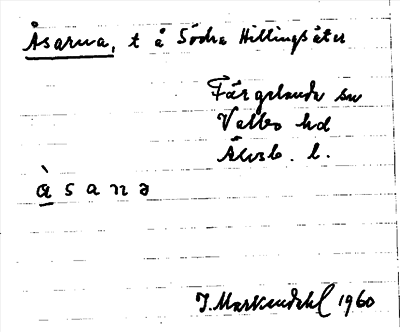 Åsarna, t å Södra Hillingsäter
Färgelanda sn
Valbo hd
Älvsb. l.
å̀sana
J. Markendahl 1960